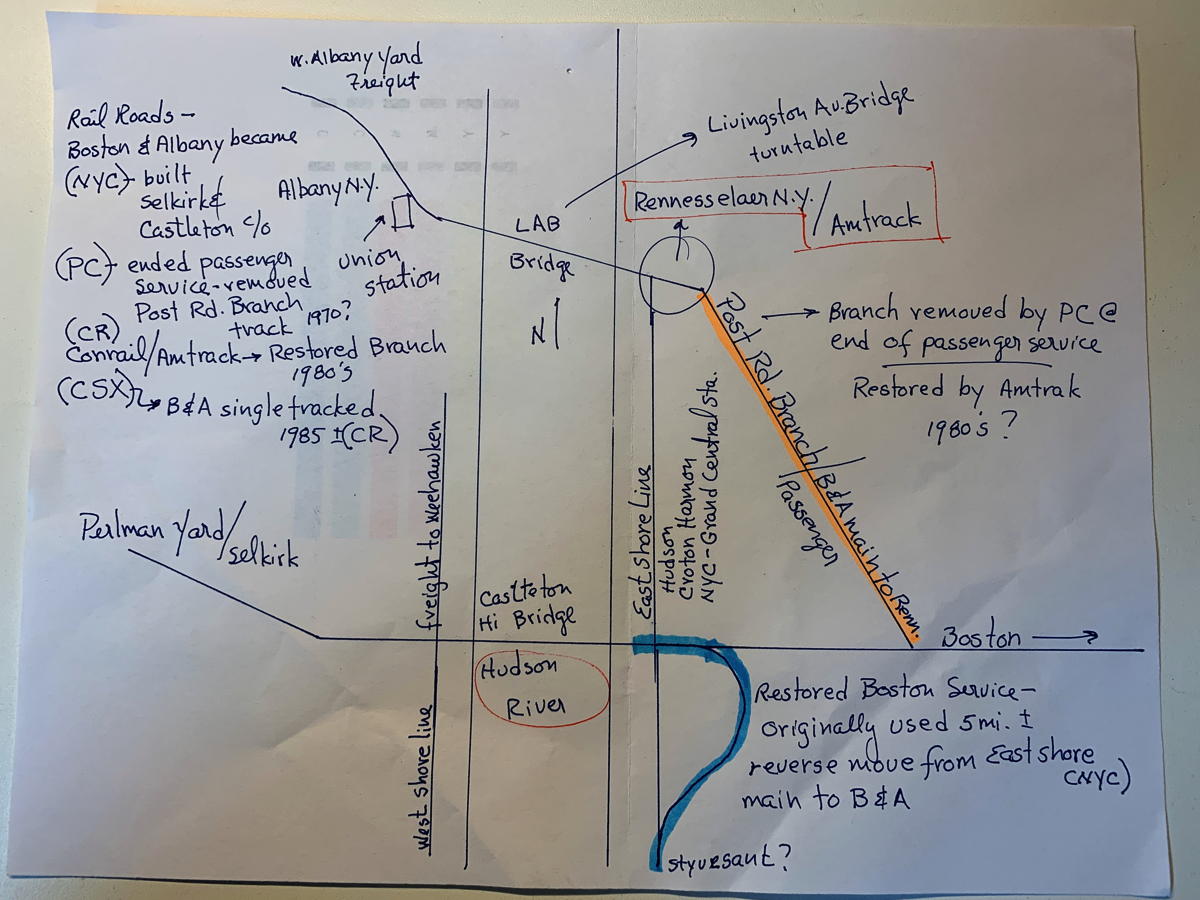 W. Albany Yard
Freight
Rail Roads –
Boston & Albany became
(NYC) – built
Selkirk &
Castleton c/o
(PC) – ended passenger
service - removed
Post Rd. Branch
track 1970?
(CR)
Conrail/Amtrack → Restored Branch
1980's
(CSX) → B&A single tracked
1985 ± (CR)
Albany N.Y.
union
station
LAB
Bridge
N
Livingston Av. Bridge
turntable
Rennesselaer N.Y./
Amtrack
Post Rd. Branch / B&A main to Renn.
Passenger
→ Branch removed by PC @
end of passenger service
Restored by Amtrak
1980's ?
Perlman Yard/
Selkirk
freight to Weehawken
West shore line
Castleton
Hi Bridge
Hudson
River
East shore Line
Hudson
Croton Harmon
NYC-Grand Central Sta.
Boston →
Restored Boston Service –
originally used 5mi. ±
reverse move from East shore
(NYC)
main to B&A
Styvesant?